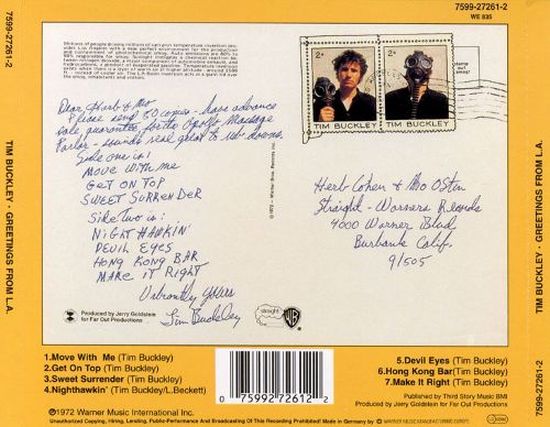 7599-27261-2
7599-27261-2
WE 835
TIM BUCKLEY · GREETINGS FROM L.A.
TIM BUCKLEY · GREETINGS FROM L.A.
2¢
2¢
TIM BUCKLEY
TIM BUCKLEY
Dear Herb & Mo
Please send 50 copies - have advance
sale guarantee for the Massage
Parlor - sounds real great to rub-downs.
Side one is:
MOVE WITH ME
GET ON TOP
SWEET SURRENDER
Side two is:
NIGHTHAWKIN'
DEVIL EYES
HONG KONG BAR
MAKE IT RIGHT
Vibrantly Yours
Tim Buckley
Herb Cohen & Mo Ostin
Straight - Warners Records
4000 Warner Blvd
Burbank Calif.
91505
Produced by Jerry Goldstein
for Far Out Productions
straight
WB
1.Move With Me (Tim Buckley)
2.Get On Top (Tim Buckley)
3.Sweet Surrender (Tim Buckley)
4.Nighthawkin' (Tim Buckley/L.Beckett)
0 75992 72612 2
5.Devil Eyes (Tim Buckley)
6.Hong Kong Bar(Tim Buckley)
7.Make It Right (Tim Buckley)
Published by Third Story Music BMI
Produced by Jerry Goldstein for Far Out Productions
℗1972 Warner Music International Inc.
Unauthorized Copying, Hiring, Lending, Public-Performance And Broadcasting Of This Recording Prohibited! Made in Germany by